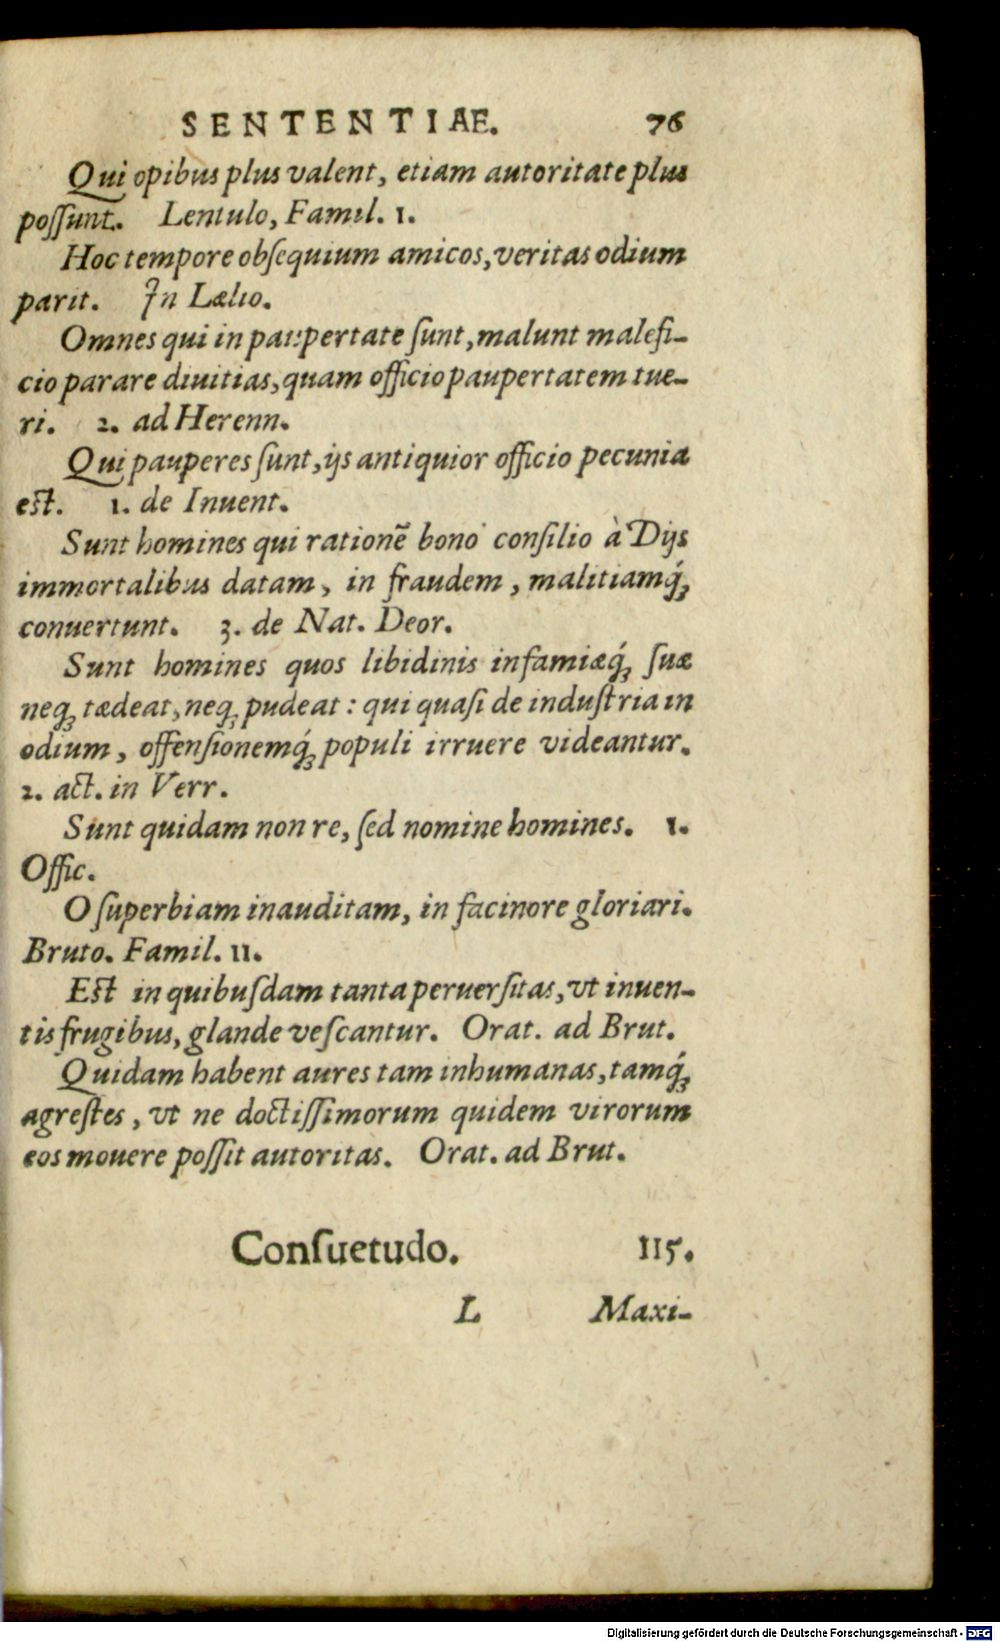 SENTENTIAE. 76
Qui opibus plus valent, etiam autoritate plus
poſſunt. Lentulo, Famil. 1.
Hoc tempore obſequium amicos, veritas odium
parit. In Lælio.
Omnes qui in paupertate ſunt, malunt malefi-
cio parare diuitias, quam officio paupertatem tue-
ri. 2. ad Herenn.
Qui pauperes ſunt, ijs antiquior officio pecunia
est. 1. de Inuent.
Sunt homines qui rationē bono conſilio à Dijs
immortalibus datam, in fraudem, malitiamq́;
conuertunt. 3. de Nat. Deor.
Sunt homines quos libidinis infamiæq́; ſuæ
neq; tædeat, neq; pudeat: qui quaſi de induſtria in
odium, offenſionemq́; populi irruere videantur.
2. act. in Verr.
Sunt quidam non re, ſed nomine homines. 1.
Offic.
O ſuperbiam inauditam, in facinore gloriari.
Bruto. Famil. 11.
Est in quibuſdam tanta peruerſitas, vt inuen-
tis frugibus, glande veſcantur. Orat. ad Brut.
Quidam habent aures tam inhumanas, tamq́;
agreſtes, vt ne doctiſſimorum quidem virorum
eos mouere poſſit autoritas. Orat. ad Brut.
Conſuetudo. 115.
L Maxi-
Digitalisierung gefördert durch die Deutsche Forschungsgemeinschaft - DFG